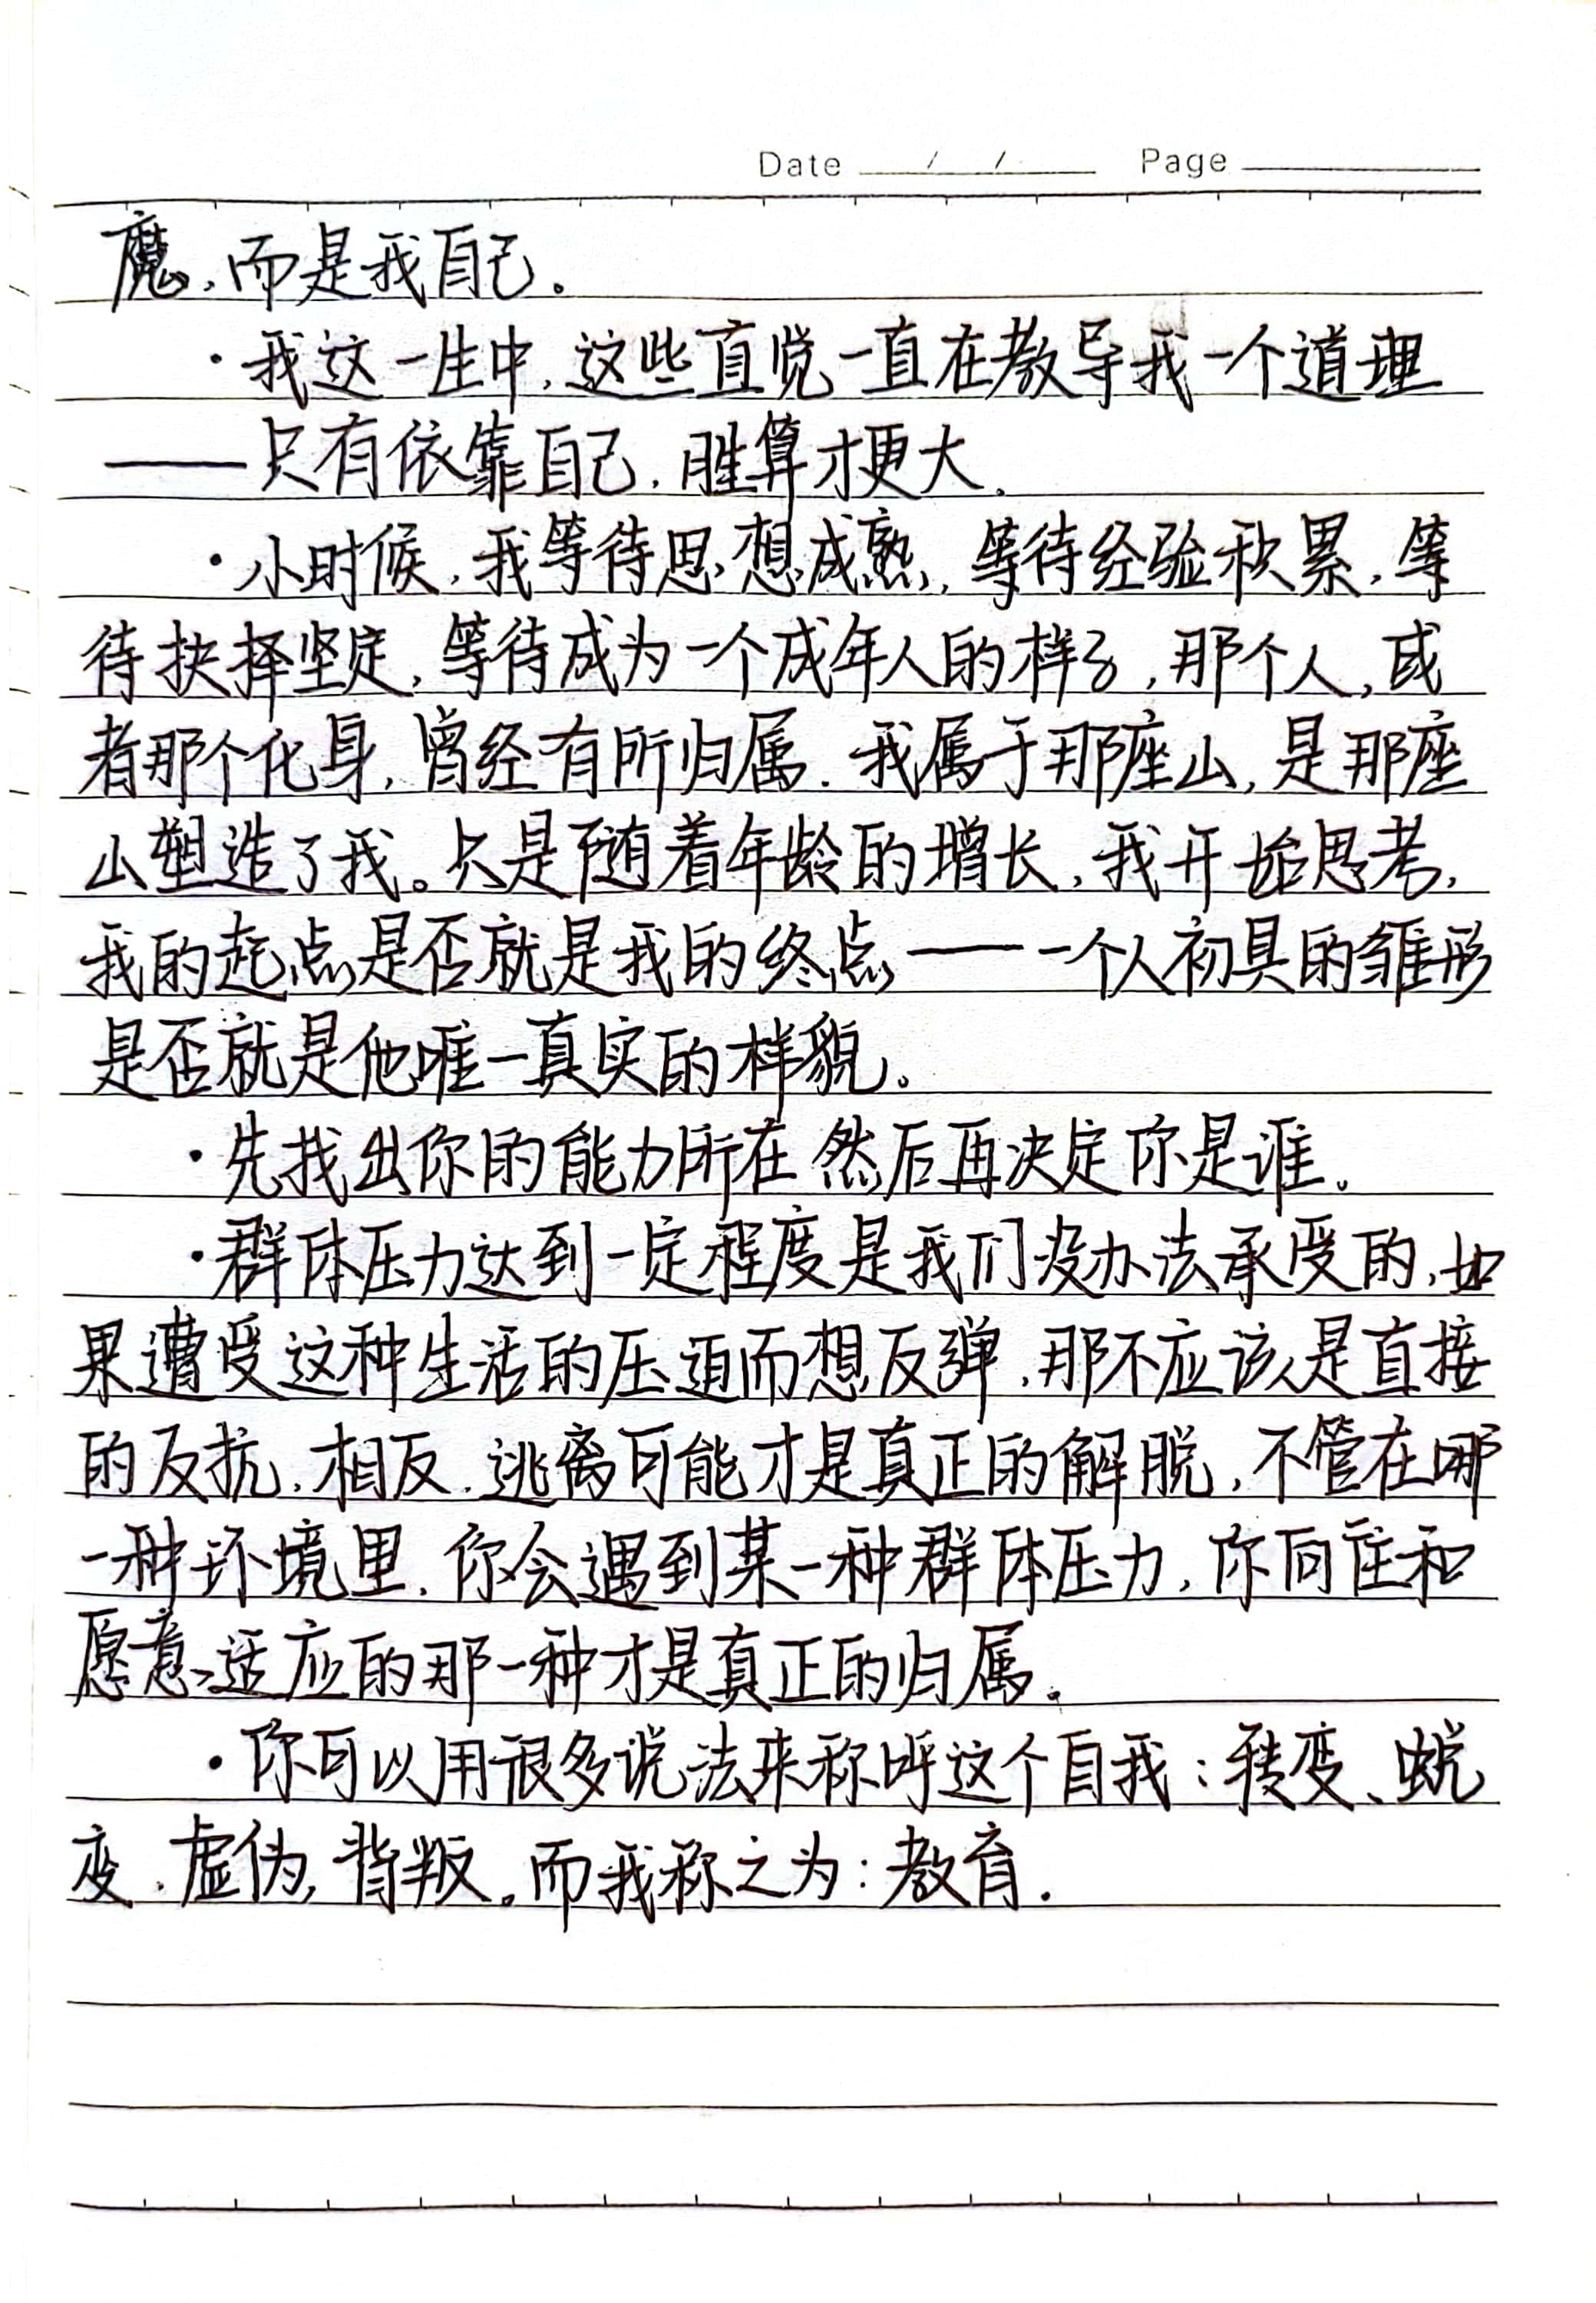 Date / / Page
魔,而是我自己.
·我这一生中,这些直觉一直在教导我一个道理
——只有依靠自己,胜算才更大.
·小时候,我等待思想成熟,等待经验积累,等
待抉择坚定,等待成为一个成年人的样子,那个人,或
者那个化身,曾经有所归属.我属于那座山,是那座
山塑造了我。只是随着年龄的增长,我开始思考,
我的起点是否就是我的终点——一个人初具的雏形
是否就是他唯一真实的样貌。
·先找出你的能力所在 然后再决定你是谁。
·群体压力达到一定程度是我们没办法承受的,如
果遭受这种生活的压迫而想反弹,那不应该是直接
的反抗,相反,逃离可能才是真正的解脱,不管在哪
一种环境里,你会遇到某一种群体压力,你向往和
愿意适应的那一种才是真正的归属.
·你可以用很多说法来称呼这个自我:转变、蜕
变、虚伪,背叛。而我称之为:教育.